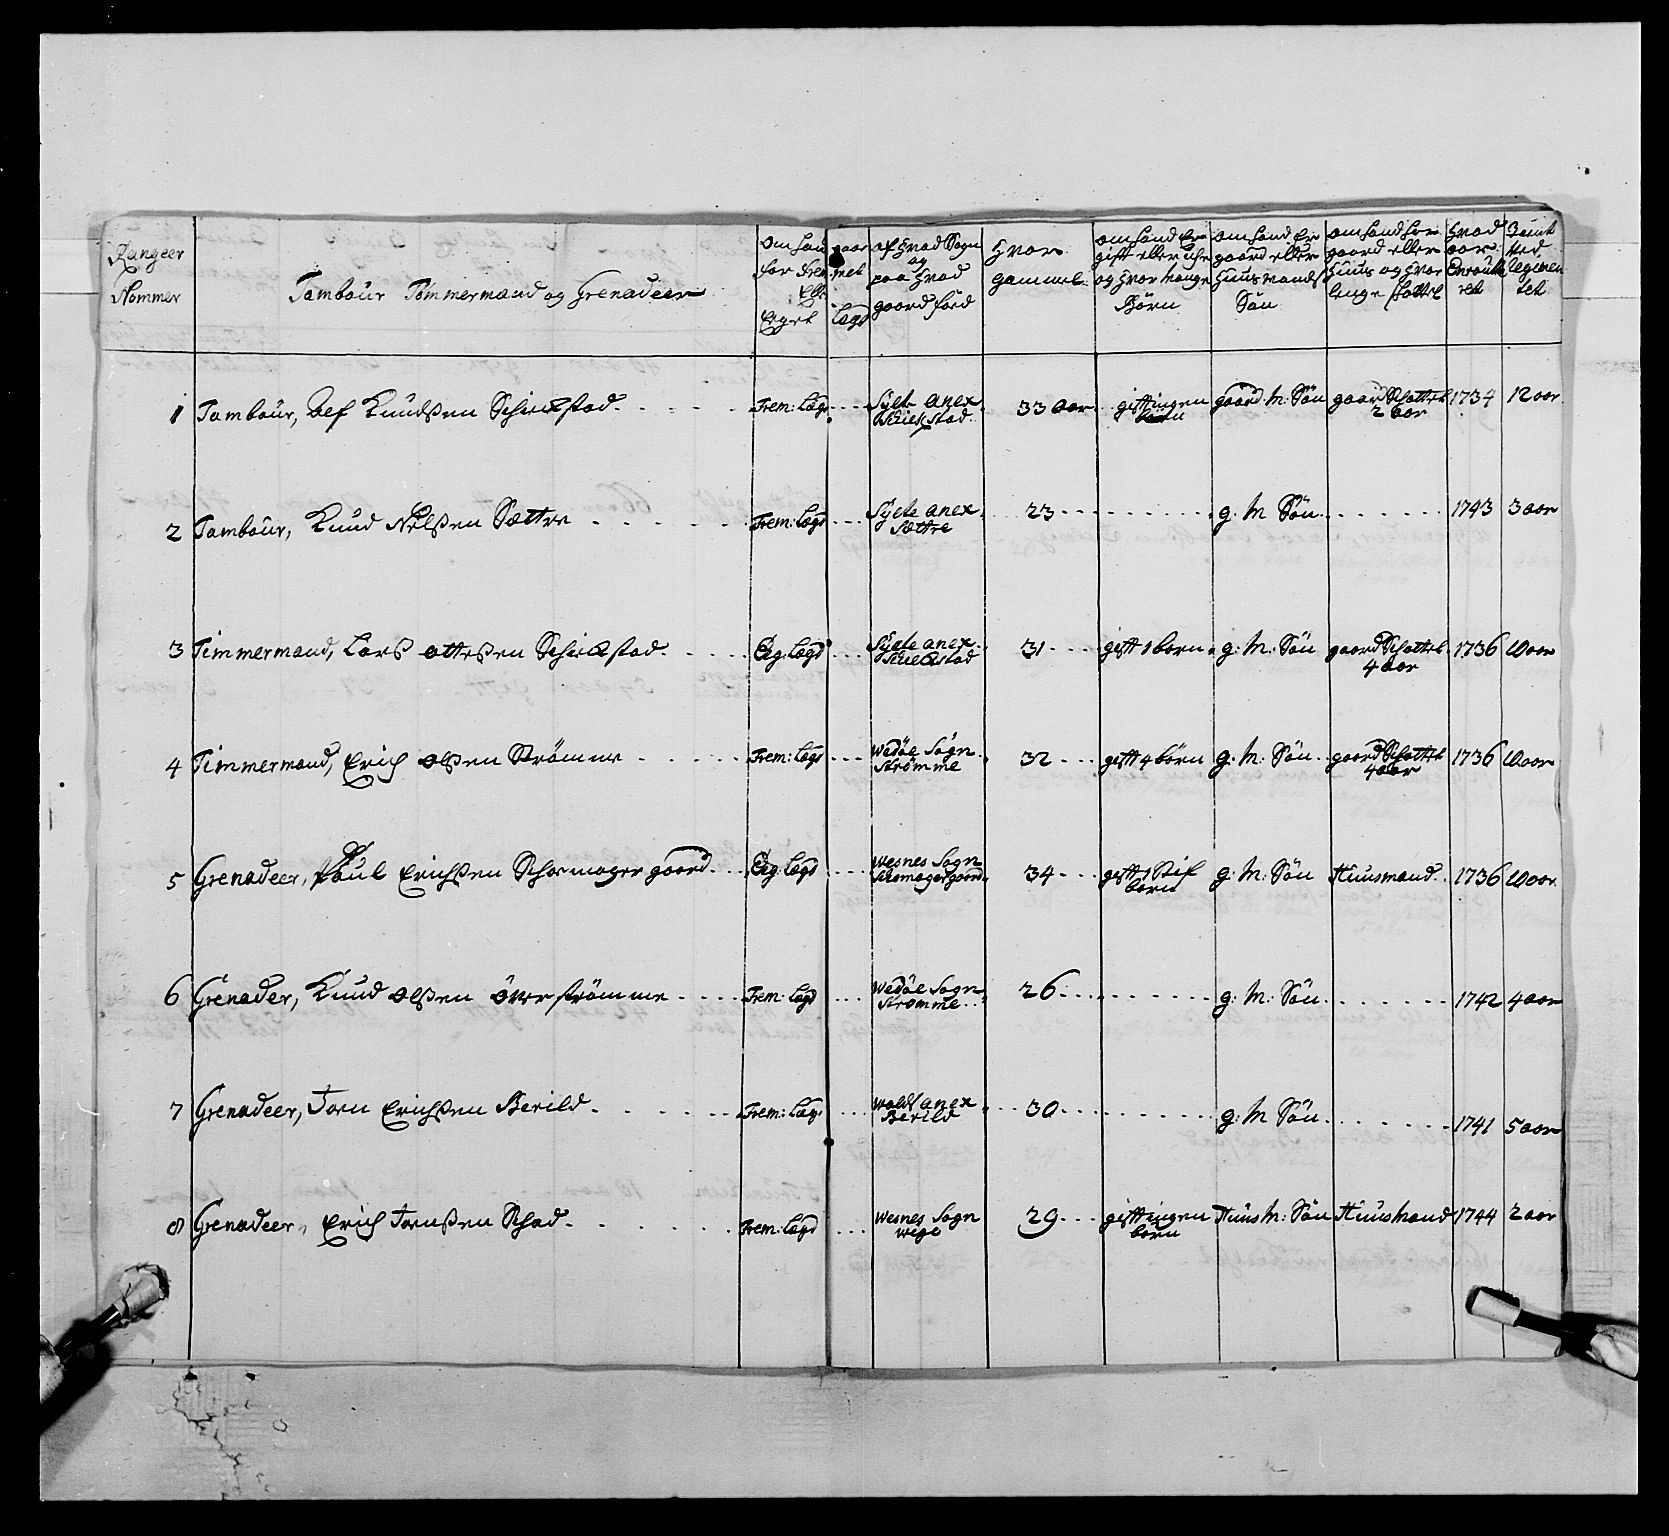 Rangeer
Nommer
Tambour Timmermand og Grenadeer
om hand
for frem
Eget Lægd
af hvad Sogn
og
paa hvad
gaard föed
hvor
gammel
om hand er
gift eller iche
og hvor mange
Börn
om hand er
gaard eller
huusmands
Sön
om hand har
gaard eller
huus og hvor
lenge
hvad
aar
Enroule
ret
Tient
ved
Regimen
tet
1 Tambour, Knudsen Schiekstad Frem: Lægd Sylte anex Schiekstad 33 aar gift ingen born gaard: M: Sön gaard 2 aar 1734 12 aar
2 Tambour, Knud Nilsen Sættre Frem: Lægd Sylte anex Sættre 23 g: M Sön 1743 3 aar
3 Timmermand, Lars ottesen Schiekstad Eg: Lægd Sylte anex Schiekstad 31 gift 1 born g: M: Sön gaard 4 aar 1736 10 aar
4 Timmermand, Erich olsen Strömme Frem: Lægd Wedöe Sogn Strömme 32 gift 4 börn g: M: Sön gaard 4 aar 1736 10 aar
5 Grenadeer, Paul Erichsen Schomager gaard Eg: Lægd Wesnes Sogn Schomagergaard 34 gift 1 Stif born g: M: Sön Huusmand 1736 10 aar
6 Grenader, Knud olsen överströmme Frem: Lægd Wedöe Sogn Strömme 26 g: M: Sön 1742 4 aar
7 Grenadeer, Jorn Erichsen Berild Frem: Lægd anex Berild 30 g: M Sön 1741 5 aar
8 Grenadeer, Erich Jornsen Schad Frem: Lægd Wesnes Sogn Wege 29 gift ingen born Huus M: Sön Huusmand 1744 2 aar